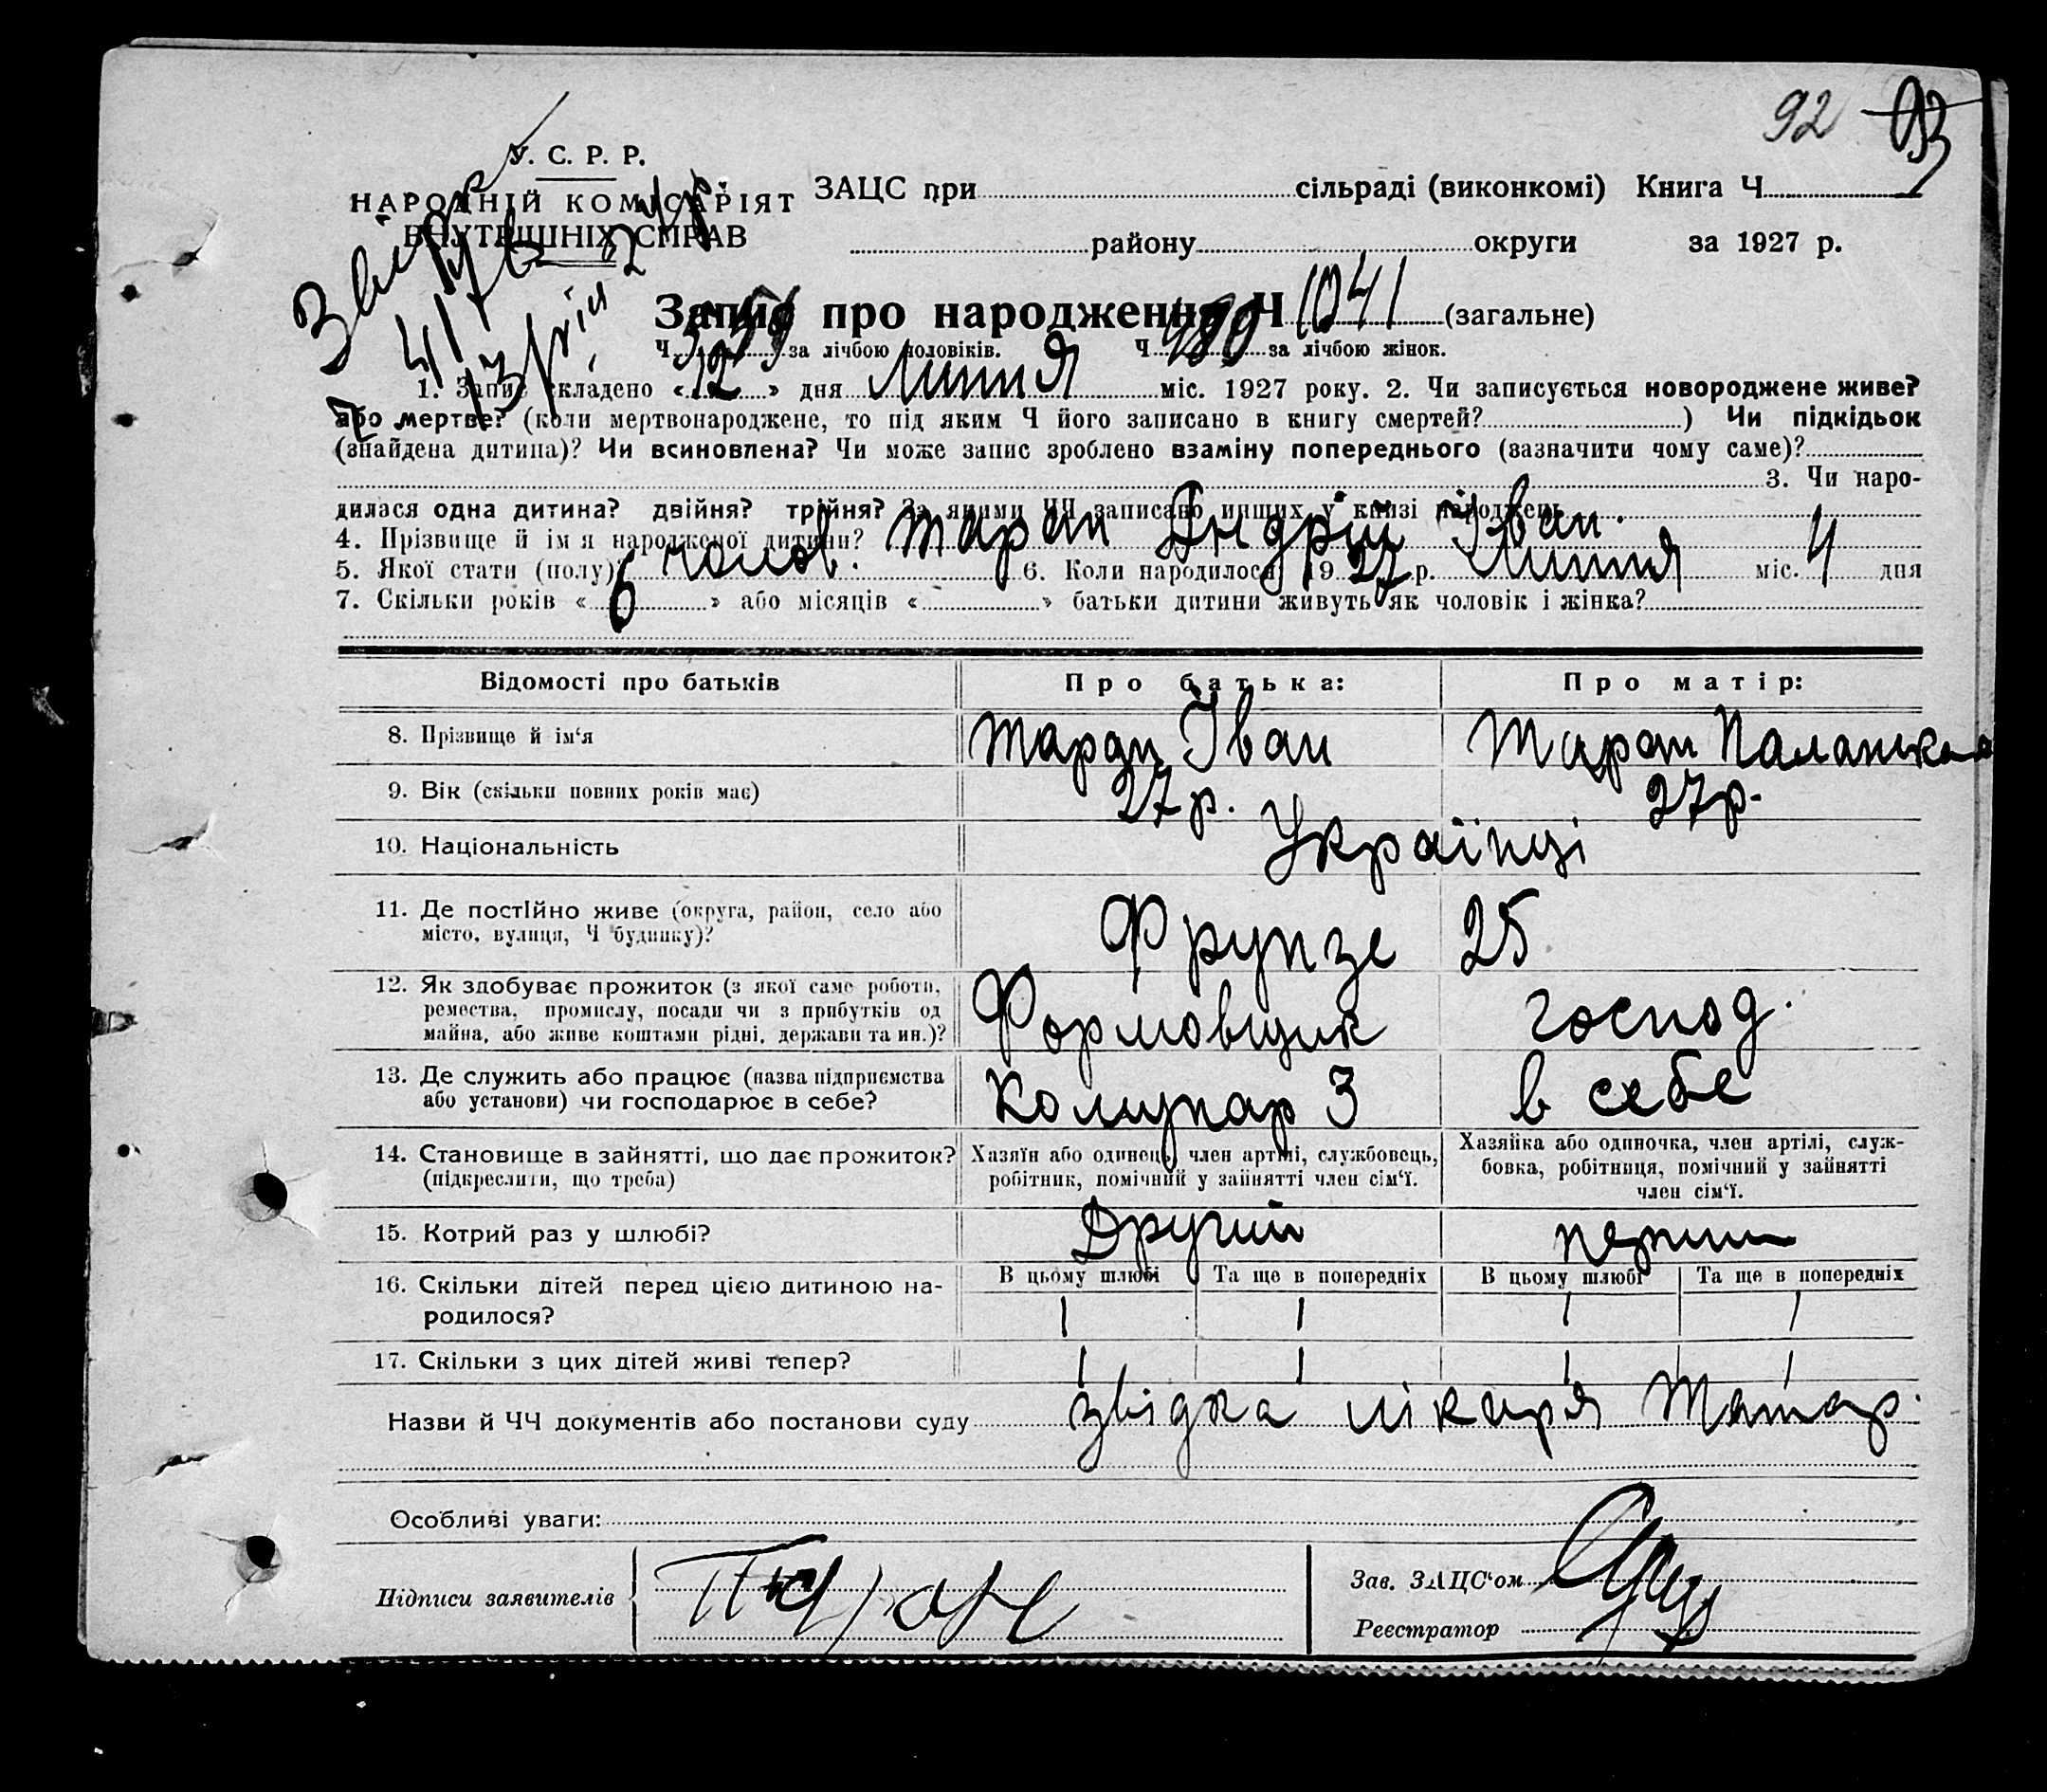 92 93
У. С. Р. Р.
НАРОДНІЙ КОМІСАРІЯТ
ВНУТРІШНІХ СПРАВ
ЗАЦС при сільраді (виконкомі) Книга Ч
району округи за 1927 р.
Запис про народження Ч 1041 (загальне)
Ч за лічбою чоловіків. Ч за лічбою жінок.
1. Запис складено « 12 » дня Липня міс. 1927 року. 2. Чи записується новороджене живе?
або мертве? (коли мертвонароджене, то під яким Ч його записано в книгу смертей? ) Чи підкідьок
(знайдена дитина)? Чи всиновлена? Чи може запис зроблено взаміну попереднього (зазначити чому саме)?
3. Чи наро-
дилася одна дитина? двійня? трійня? За якими ЧЧ записано инших у книзі народжень
4. Прізвище й ім'я народженої дитини? Таран Андрій Іван.
5. Якої стати (полу)? чолов. 6. Коли народилося? 1927 р. Липня міс. 4 дня
7. Скільки років « 6 » або місяців « » батьки дитини живуть як чоловік і жінка?
Відомості про батьків Про батька: Про матір:
8. Прізвище й ім'я Таран Іван Таран Палажка
9. Вік (скільки повних років має) 27 р. 27 р.
10. Національність Українці
11. Де постійно живе (округа, район, село або
місто, вулиця, Ч будинку)? Фрунзе 25
12. Як здобуває прожиток (з якої саме роботи,
ремества, промислу, посади чи з прибутків од
майна, або живе коштами рідні, держави та ин.)? Формовщик господ.
13. Де служить або працює (назва підприємства
або установи) чи господарює в себе? Комунар З в себе
14. Становище в зайнятті, що дає прожиток?
(підкреслити, що треба)
Хазяїн або одинець, член артілі, службовець,
робітник, помічний у зайнятті член сім'ї.
Хазяйка або одиночка, член артілі, служ-
бовка, робітниця, помічний у зайнятті
член сім'ї.
15. Котрий раз у шлюбі? Другий перший
16. Скільки дітей перед цією дитиною на-
родилося?
В цьому шлюбі Та ще в попередніх В цьому шлюбі Та ще в попередніх
1 1 1 1
17. Скільки з цих дітей живі тепер? 1 1 1 1
Назви й ЧЧ документів або постанови суду звідка лікаря Татар.
Особливі уваги:
Підписи заявителів Таран
Зав. ЗАЦС'ом
Реєстратор